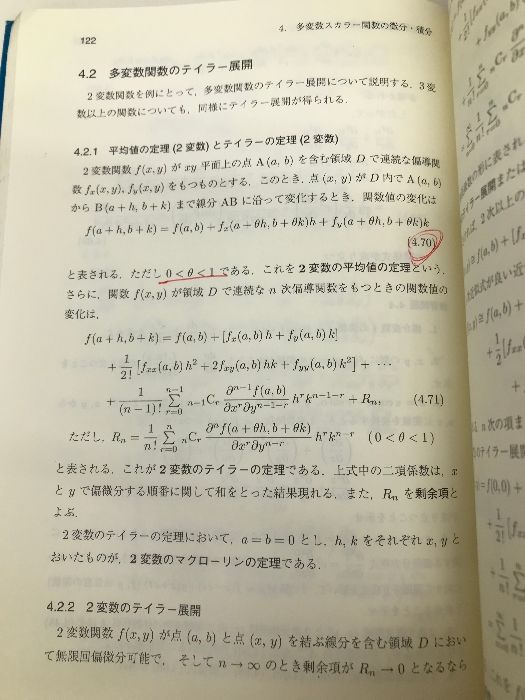 122
4. 多変数スカラー関数の微分・積分
4.2 多変数関数のテイラー展開
2変数関数を例にとって，多変数関数のテイラー展開について説明する．3変
数以上の関数についても，同様にテイラー展開が得られる．
4.2.1 平均値の定理 (2変数) とテイラーの定理 (2変数)
2変数関数 f(x, y) が xy 平面上の点 A(a, b) を含む領域 D で連続な偏導関
数 fx(x, y), fy(x, y) をもつものとする．このとき，点 (x, y) が D 内で A(a, b)
から B(a + h, b + k) まで線分 AB に沿って変化するとき，関数値の変化は
f(a + h, b + k) = f(a, b) + fx(a + θh, b + θk)h + fy(a + θh, b + θk)k
(4.70)
と表される．ただし 0 < θ < 1 である．これを 2 変数の平均値の定理という．
さらに，関数 f(x, y) が領域 D で連続な n 次偏導関数をもつときの関数値の
変化は，
f(a + h, b + k) = f(a, b) + [fx(a, b) h + fy(a, b) k]
+ 1/2! [fxx(a, b) h² + 2fxy(a, b) hk + fyy(a, b) k²] + ···
+ 1/(n − 1)! Σ_{r=0}^{n−1} n−1Cr ∂ⁿ⁻¹f(a, b)/∂xʳ∂yⁿ⁻¹⁻ʳ hʳkⁿ⁻¹⁻ʳ + Rn, (4.71)
ただし，Rn = 1/n! Σ_{r=0}^{n} nCr ∂ⁿf(a + θh, b + θk)/∂xʳ∂yⁿ⁻ʳ hʳkⁿ⁻ʳ (0 < θ < 1)
と表される．これが 2 変数のテイラーの定理である．上式中の二項係数は，x
と y で偏微分する順番に関して和をとった結果現れる．また，Rn を剰余項と
よぶ．
2変数のテイラーの定理において，a = b = 0 とし，h, k をそれぞれ x, y と
おいたものが，2 変数のマクローリンの定理である．
4.2.2 2変数のテイラー展開
2変数関数 f(x, y) が点 (a, b) と点 (x, y) を結ぶ線分を含む領域 D におい
て無限回偏微分可能で，そして n → ∞ のとき剰余項が Rn → 0 となるなら